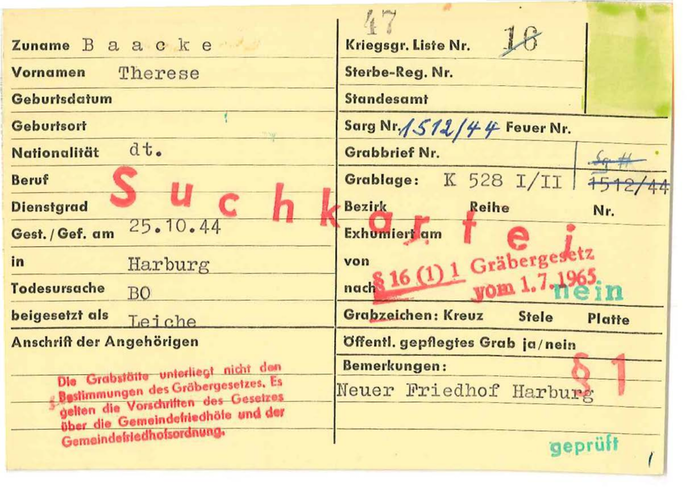 47
Zuname B a a c k e
Kriegsgr. Liste Nr. 16
Vornamen Therese
Sterbe-Reg. Nr.
Geburtsdatum
Standesamt
Geburtsort
Sarg Nr. 1512/44 Feuer Nr.
Nationalität dt.
Grabbrief Nr.
Beruf
Grablage: K 528 I/II 1512/44
Suchkartei
Dienstgrad
Bezirk Reihe Nr.
Gest./Gef. am 25.10.44
Exhumiert am
in Harburg
von
§ 16 (1) 1 Gräbergesetz
vom 1.7.1965
Todesursache BO
nach nein
beigesetzt als Leiche
Grabzeichen: Kreuz Stele Platte
Anschrift der Angehörigen
Öffentl. gepflegtes Grab ja/nein
Bemerkungen:
§ 1
Neuer Friedhof Harburg
Die Grabstätte unterliegt nicht den
Bestimmungen des Gräbergesetzes. Es
gelten die Vorschriften des Gesetzes
über die Gemeindefriedhöfe und der
Gemeindefriedhofsordnung.
geprüft